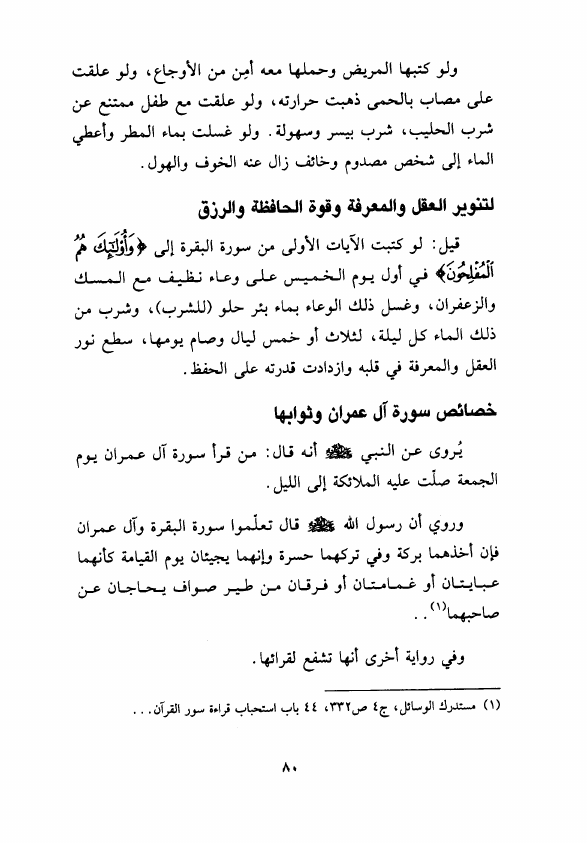 ولو كتبها المريض وحملها معه أمِن من الأوجاع، ولو علقت
على مصاب بالحمى ذهبت حرارته، ولو علقت مع طفل ممتنع عن
شرب الحليب، شرب بيسر وسهولة. ولو غسلت بماء المطر وأعطي
الماء إلى شخص مصدوم وخائف زال عنه الخوف والهول.
لتنوير العقل والمعرفة وقوة الحافظة والرزق
قيل: لو كتبت الآيات الأولى من سورة البقرة إلى ﴿وَأُوْلَٰٓئِكَ هُمُ
ٱلْمُفْلِحُونَ﴾ في أول يوم الخميس على وعاء نظيف مع المسك
والزعفران، وغسل ذلك الوعاء بماء بئر حلو (للشرب)، وشرب من
ذلك الماء كل ليلة، لثلاث أو خمس ليال وصام يومها، سطع نور
العقل والمعرفة في قلبه وازدادت قدرته على الحفظ.
خصائص سورة آل عمران وثوابها
يُروى عن النبي ﷺ أنه قال: من قرأ سورة آل عمران يوم
الجمعة صلّت عليه الملائكة إلى الليل.
وروي أن رسول الله ﷺ قال تعلّموا سورة البقرة وآل عمران
فإن أخذهما بركة وفي تركهما حسرة وإنهما يجيئان يوم القيامة كأنهما
عبايتان أو غمامتان أو فرقان من طير صواف يحاجان عن
صاحبهما(١)..
وفي رواية أخرى أنها تشفع لقرائها.
(١) مستدرك الوسائل، ج٤ ص٣٣٢، ٤٤ باب استحباب قراءة سور القرآن...
٨٠